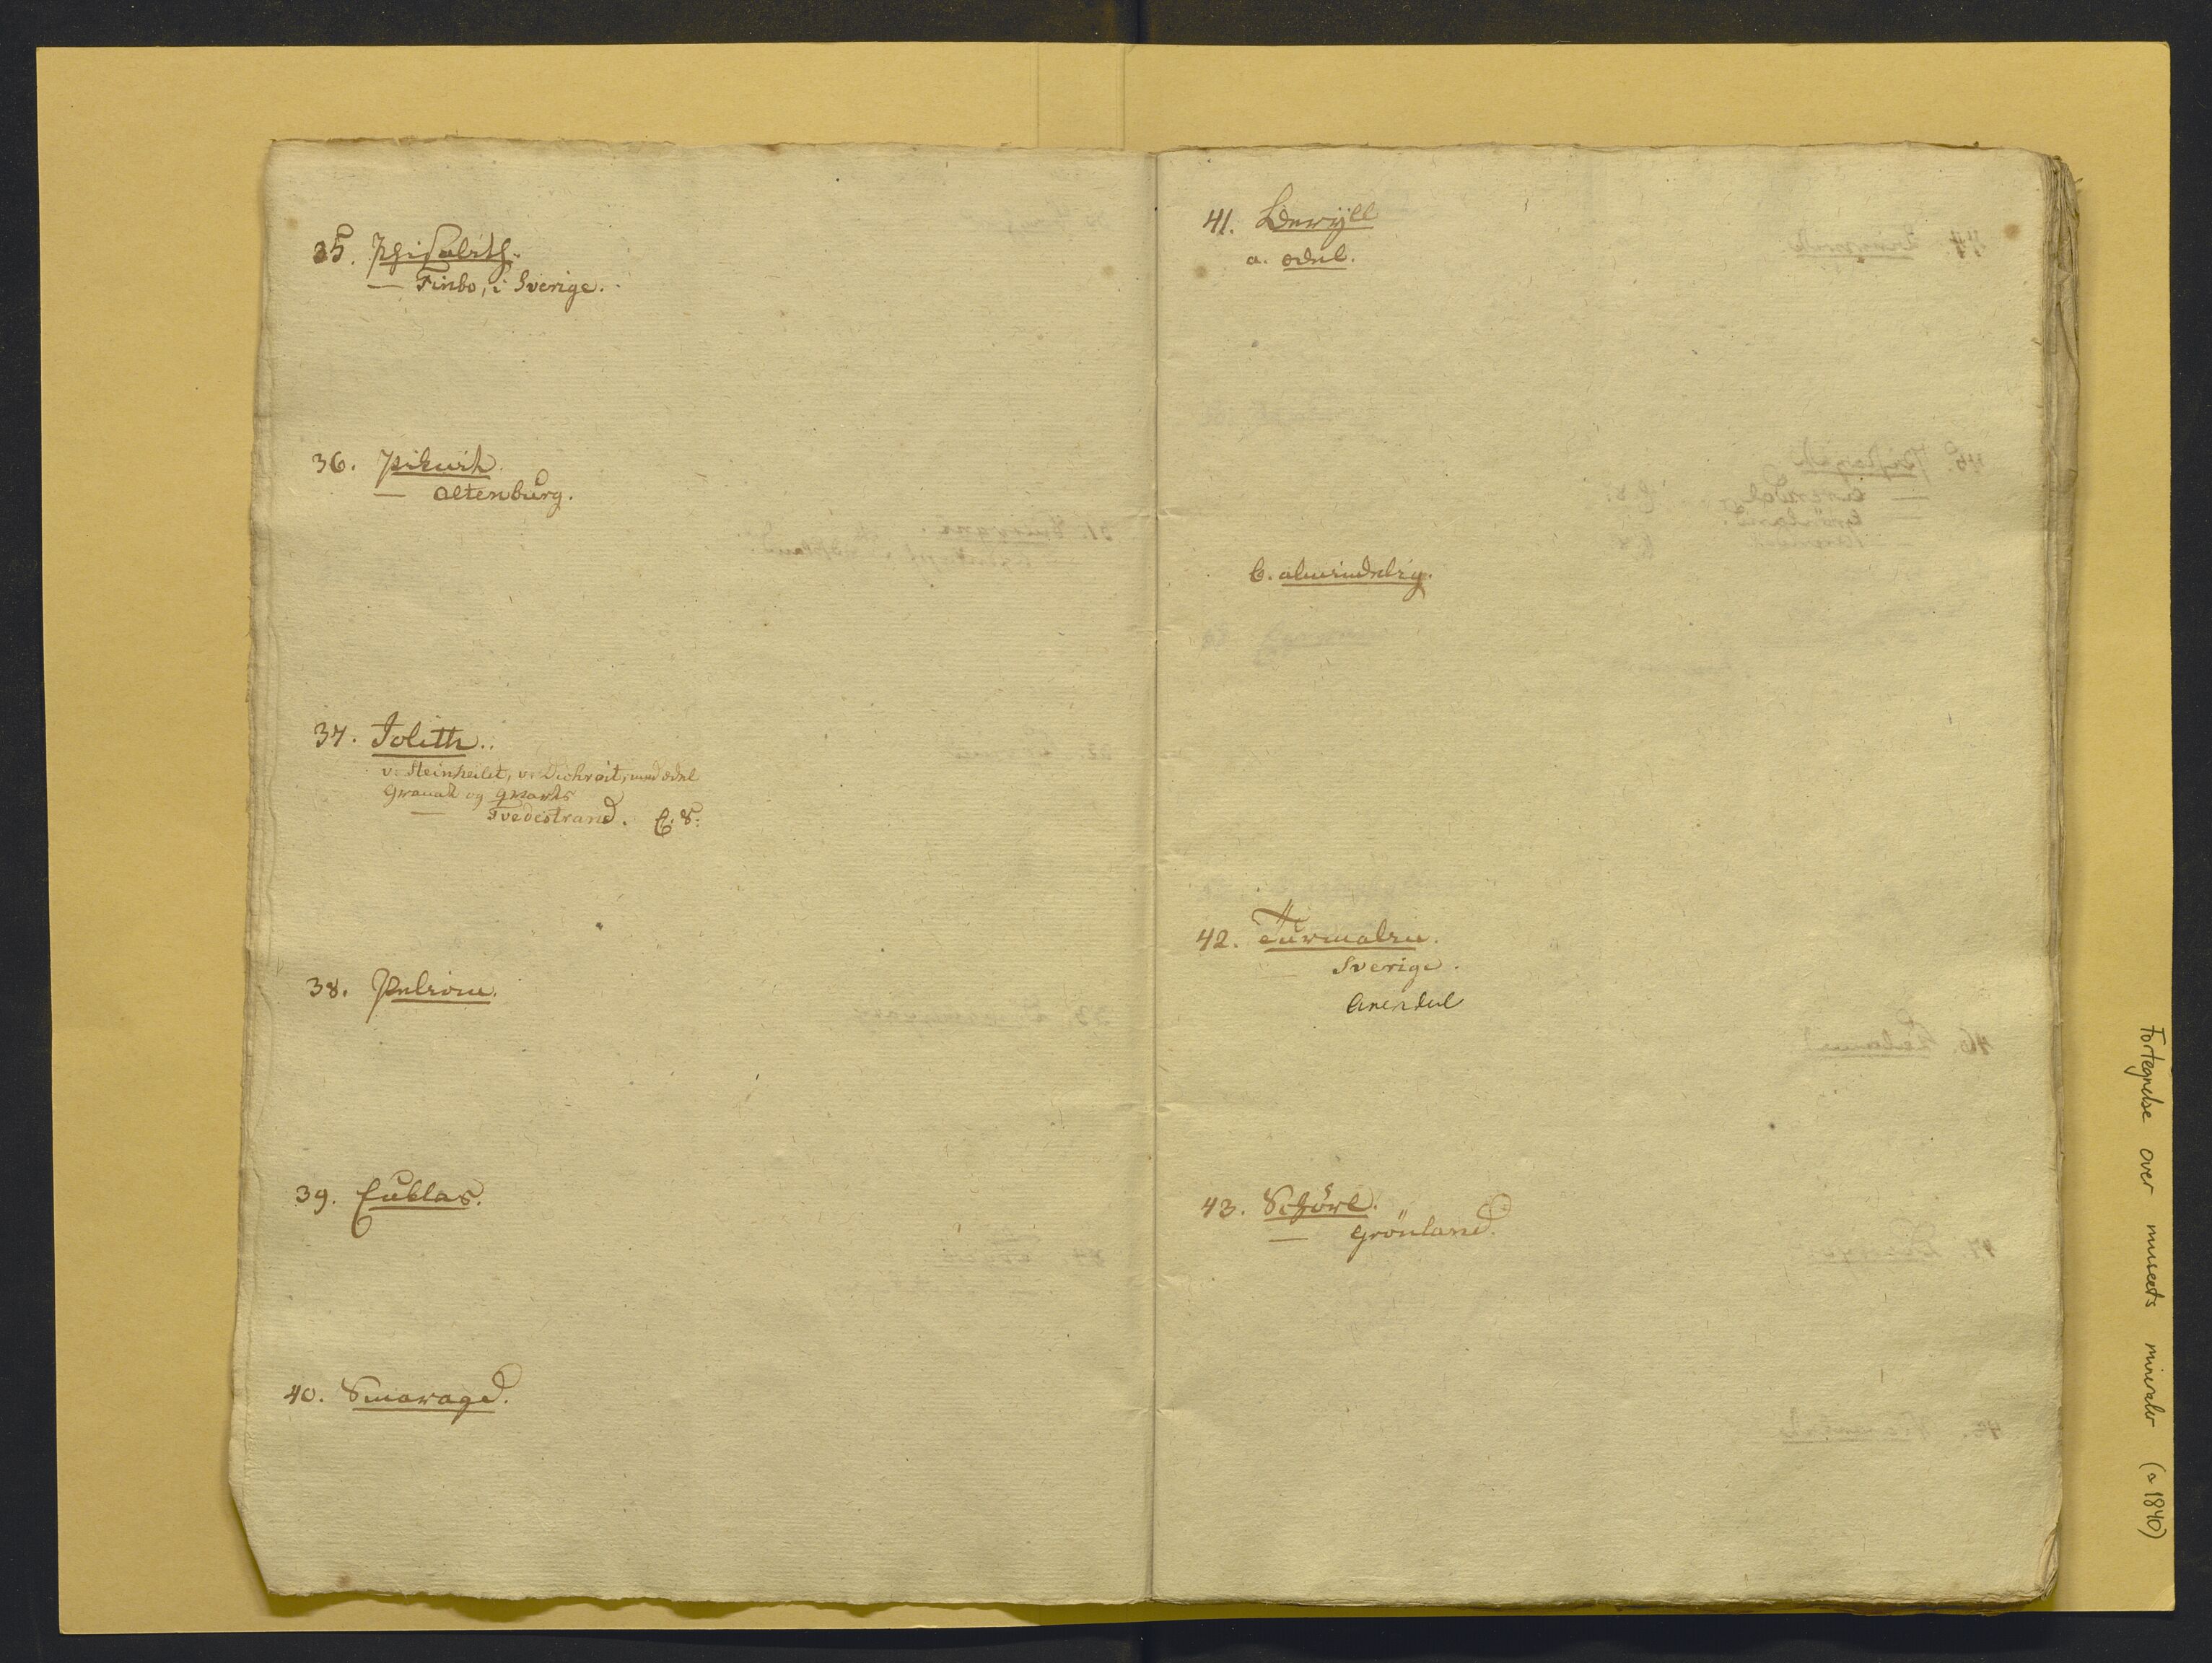 35. Physalith.
— Finbo, i Sverige.
36. Piknit.
— Altenburg.
37. Iolith.
v. Steinheilit, v. Dichroit, med ædel
Granat og Qvarts
— Tvedestrand. E. S.
38. Peliom.
39. Euklas.
40. Smaragd.
41. Beryll
a. ædel.
b. almindelig.
42. Turmalin.
— Sverige.
Arendal
43. Schörl.
— Grönland.
Fortegnelse over museets mineraler (a 1840)